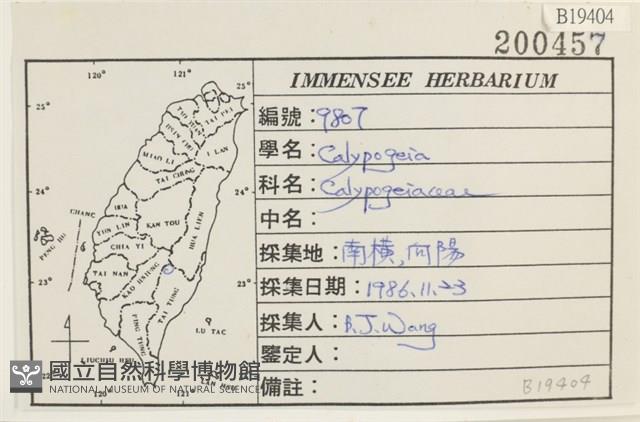 B19404
200457
IMMENSEE HERBARIUM
編號：9807
學名：Calypogeia
科名：Calypogeiaceae
中名：
採集地：南橫,向陽
採集日期：1986.11.23
採集人：B.J.Wang
鑒定人：
備註：
B19404
120°
121°
25°
25°
24°
24°
23°
23°
120
121
TAI PEI
I LAN
MIAO LI
TAI CHUNG
CHANG
HUA
NAN TOU
HUA LIEN
YUN LIN
CHIA YI
PENG HU
TAI NAN
KAO HSIUNG
TAI TUNG
PING TUNG
LU TAO
LIUCHIU HSU
國立自然科學博物館
NATIONAL MUSEUM OF NATURAL SCIENCE